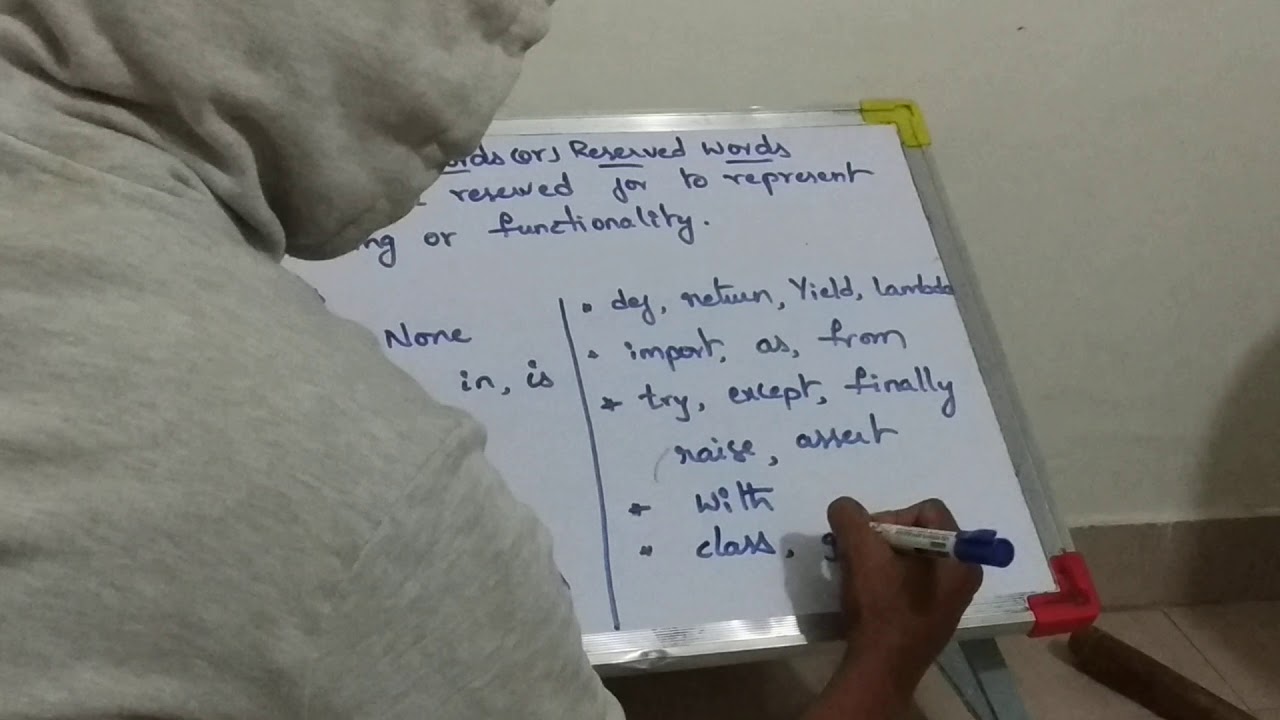 ords (or) Reserved Words
reserved for to represent
ng or functionality.
None
in, is
• def, return, Yield, Lambda
• import, as, from
* try, except, finally
raise, assert
* with
• class, g